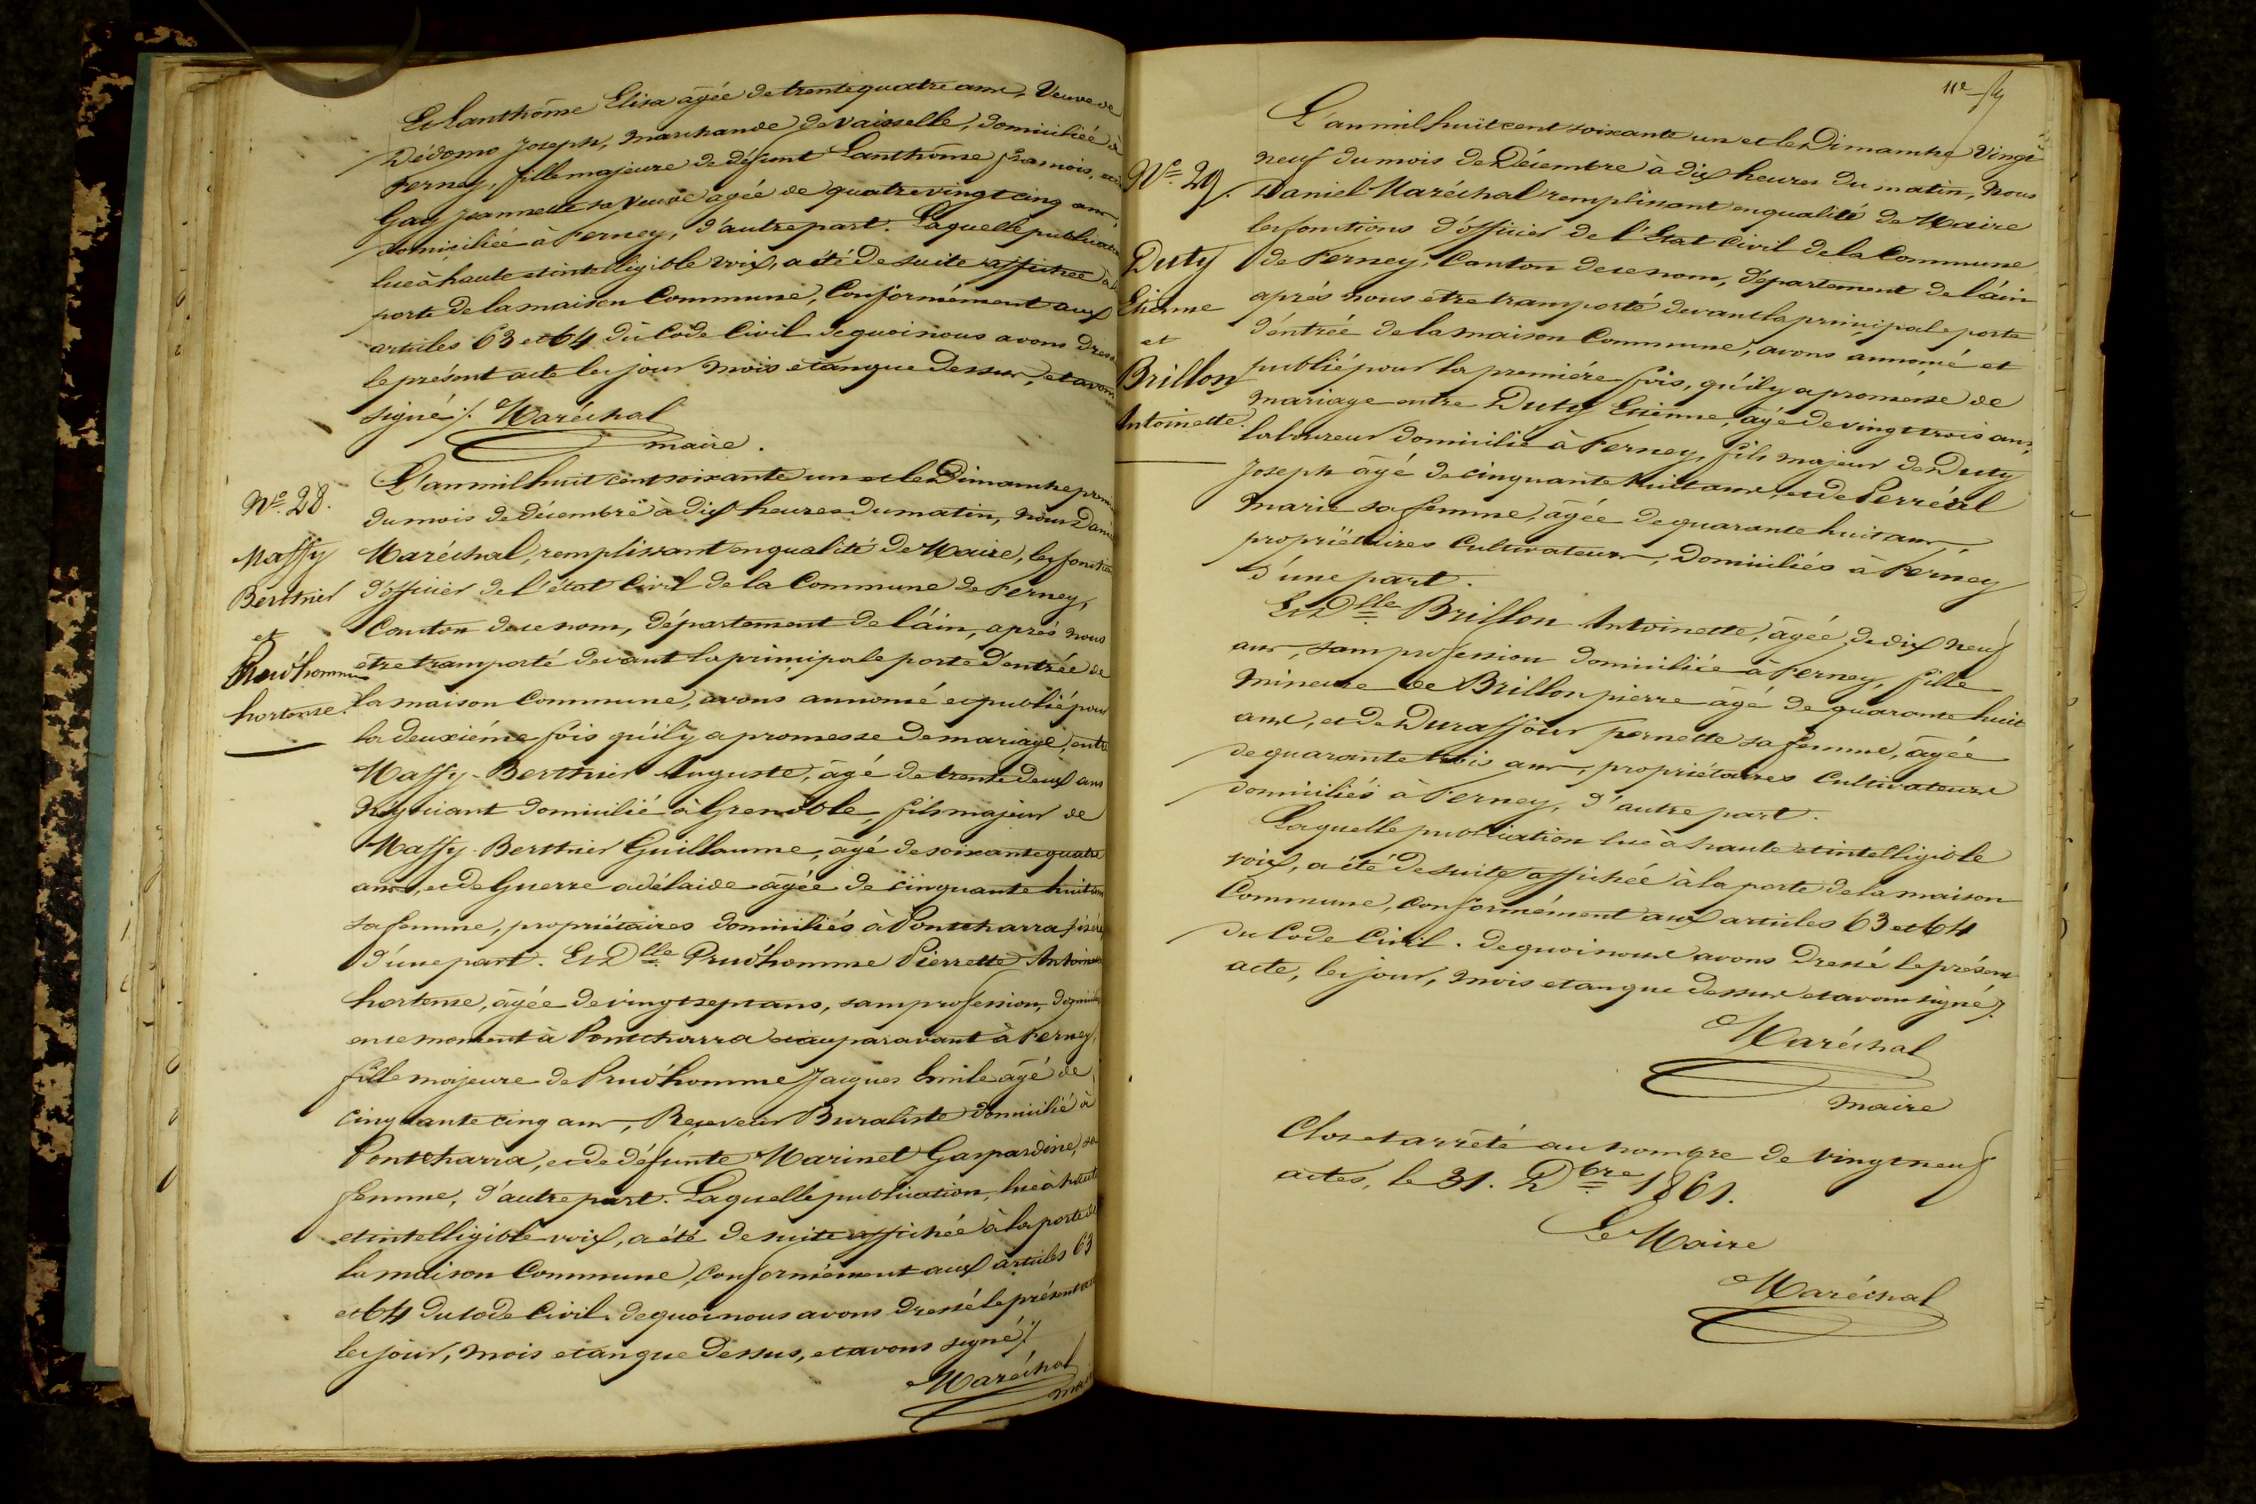 Et Lanthôme Elisa âgée de trente quatre ans, Veuve de
Dédomo Joseph, marchande de vaisselle, domiciliée à
Ferney, fille majeure de défunt Lanthôme françois, et de
Gay jeannette sa veuve âgée de quatre vingt cinq ans
domiciliée à Ferney, d'autre part. Laquelle publication
lue à haute et intelligible voix, a été de suite affichée à la
porte de la maison Commune, Conformément aux
articles 63 et 64 du Code Civil de quoi nous avons dressé
le présent acte les jour mois et an que dessus, et avons
signé ./. Maréchal
maire.
N° 28.
Maffy
Berthier
et
Prud'homme
hortense.
L'an mil huit cent soixante un et le Dimanche premier
du mois de décembre à dix heures du matin, Nous Daniel
Maréchal, remplissant en qualité de Maire, les fonctions
d'officier de l'état Civil de la Commune de Ferney,
Canton de ce nom, département de l'áin, après nous
être transporté devant la principale porte d'entrée de
la maison Commune, avons annoncé et publié pour
la deuxiéme fois qu'il y a promesse de mariage, entre
Maffy-Berthier Auguste, âgé de trente deux ans
Négociant domicilié à Grenoble, fils majeur de
Maffy-Berthier Guillaume, âgé de soixante quatre
ans, et de Guerre adélaide âgée de cinquante huit ans
sa femme, propriétaires domiciliés à Pontcharra
d'une part. Et Dlle Prud'homme Pierrette Antoinette
hortense, âgée de vingt sept ans, sans profession, domiciliée
en ce moment à Pontcharra et auparavant à Ferney,
fille majeure de Prud'homme Jacques Emile âgé de
cinquante cinq ans, Receveur Buraliste domicilié à
Pontcharra, et de défunte Marinet Gaspardine, sa
femme, d'autre part. Laquelle publication, lue à haute
et intelligible voix, a été de suite affichée à la porte de
la maison Commune, Conformément aux articles 63
et 64 du Code Civil. de quoi nous avons dressé le présent acte
les jour, mois et an que dessus, et avons signé ./.
Maréchal
maire
N° 29.
Duty
Etienne
et
Brillon
Antoinette.
L'an mil huit cent soixante un et le Dimanche Vingt
neuf du mois de Décembre à dix heures du matin, Nous
Daniel Maréchal remplissant en qualité de Maire
les fonctions d'officier de l'Etat Civil de la Commune
de Ferney, Canton de ce nom, département de l'áin
après nous être transporté devant la principale porte
d'entrée de la maison Commune, avons annoncé et
publié pour la premiére fois, qu'il y a promesse de
mariage entre Duty Etienne, âgé de vingt trois ans,
laboureur domicilié à Ferney, fils majeur de Duty
Joseph âgé de cinquante huit ans, et de Perréal
marie sa femme, âgée de quarante huit ans,
propriétaires Cultivateurs, Domiciliés à Ferney
d'une part.
Et Dlle Brillon Antoinette, âgée de dix neuf
ans, sans profession domiciliée à Ferney, fille
Mineure de Brillon pierre âgé de quarante huit
ans, et de Duraffour pernette sa femme, âgée
de quarante trois ans, propriétaires Cultivateurs
domiciliés à Ferney, d'autre part.
Laquelle publication lue à haute et intelligible
voix, a été de suite affichée à la porte de la maison
Commune, Conformément aux articles 63 et 64
du Code Civil. de quoi nous avons dressé le présent
acte, les jour, mois et an que dessus et avons signé ./.
Maréchal
maire
Clos et arrêté au nombre de vingt neuf
actes, le 31. Dbre 1861.
Le Maire
Maréchal